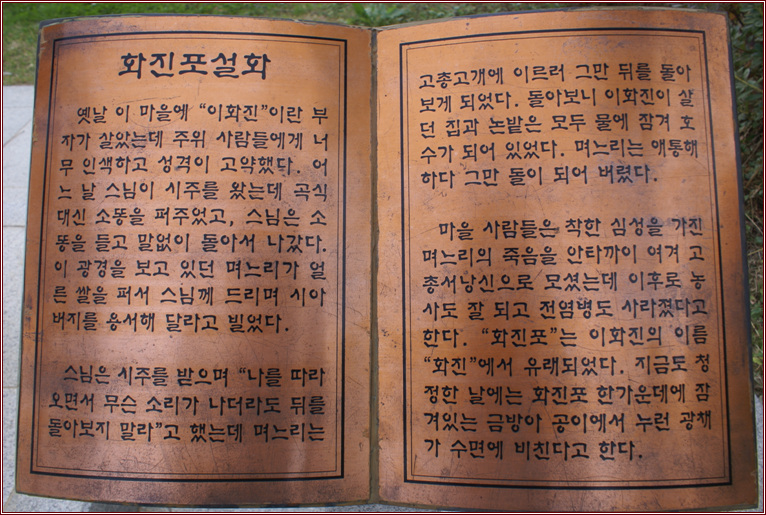 화진포설화
옛날 이 마을에 “이화진”이란 부
자가 살았는데 주위 사람들에게 너
무 인색하고 성격이 고약했다. 어
느 날 스님이 시주를 왔는데 곡식
대신 소똥을 퍼주었고, 스님은 소
똥을 들고 말없이 돌아서 나갔다.
이 광경을 보고 있던 며느리가 얼
른 쌀을 퍼서 스님께 드리며 시아
버지를 용서해 달라고 빌었다.
스님은 시주를 받으며 “나를 따라
오면서 무슨 소리가 나더라도 뒤를
돌아보지 말라”고 했는데 며느리는
고총고개에 이르러 그만 뒤를 돌아
보게 되었다. 돌아보니 이화진이 살
던 집과 논밭은 모두 물에 잠겨 호
수가 되어 있었다. 며느리는 애통해
하다 그만 돌이 되어 버렸다.
마을 사람들은 착한 심성을 가진
며느리의 죽음을 안타까이 여겨 고
총서낭신으로 모셨는데 이후로 농
사도 잘 되고 전염병도 사라졌다고
한다. “화진포”는 이화진의 이름
“화진”에서 유래되었다. 지금도 청
정한 날에는 화진포 한가운데에 잠
겨있는 금방아 공이에서 누런 광채
가 수면에 비친다고 한다.